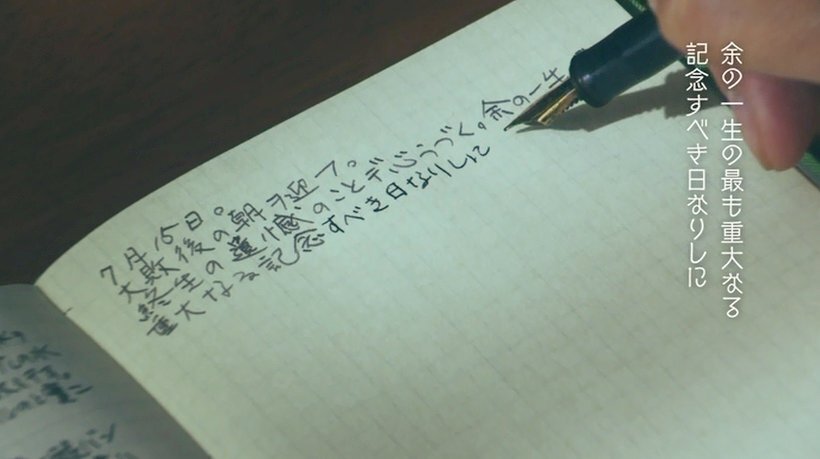 余の一生の最も重大なる
記念すべき日なりしに
7月15日。
大敗後の朝ヲ迎フ。
終生の遺憾のことデ心うづく。余の一生
重大なる記念すべき日なりしに